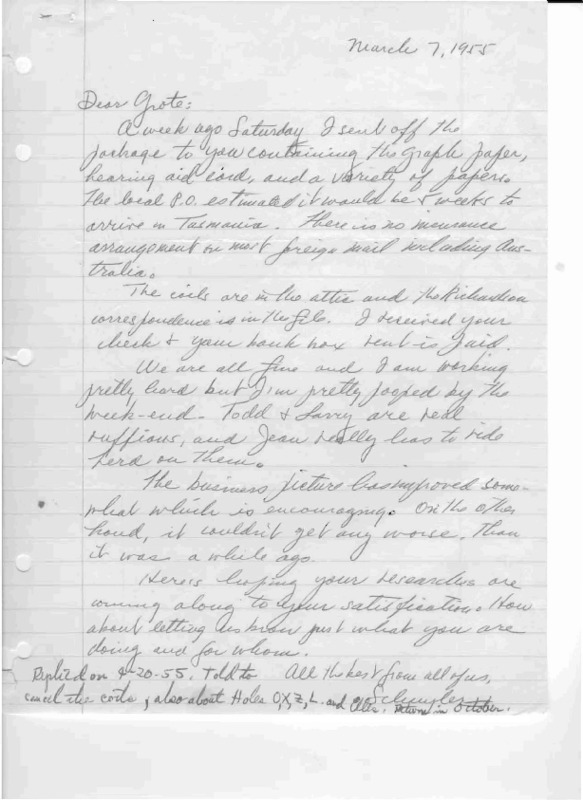 March 7, 1955
Dear Grote:
A week ago Saturday I sent off the
package to you containing the graph paper,
hearing aid cord, and a variety of papers.
The local P.O. estimated it would be 5 weeks to
arrive in Tasmania. There is no insurance
arrangement on most foreign mail including Aus-
tralia.
The coils are in the attic and the Richardson
correspondence is in the file. I received your
check & your bank box rent is paid.
We are all fine and I am working
pretty hard but I'm pretty pooped by the
week-end - Todd & Larry are real
ruffians, and Jean really has to ride
herd on them.
The business picture has improved some-
what which is encouraging. On the other
hand, it couldn't get any worse than
it was a while ago.
Here's hoping your researches are
coming along to your satisfaction. How
about letting us know just what you are
doing and for whom.
All the best from all of us,
Schuyler
Replied on 4-20-55. Told to
cancel the coils, also about Holes O, X, Z, L. and return in October.